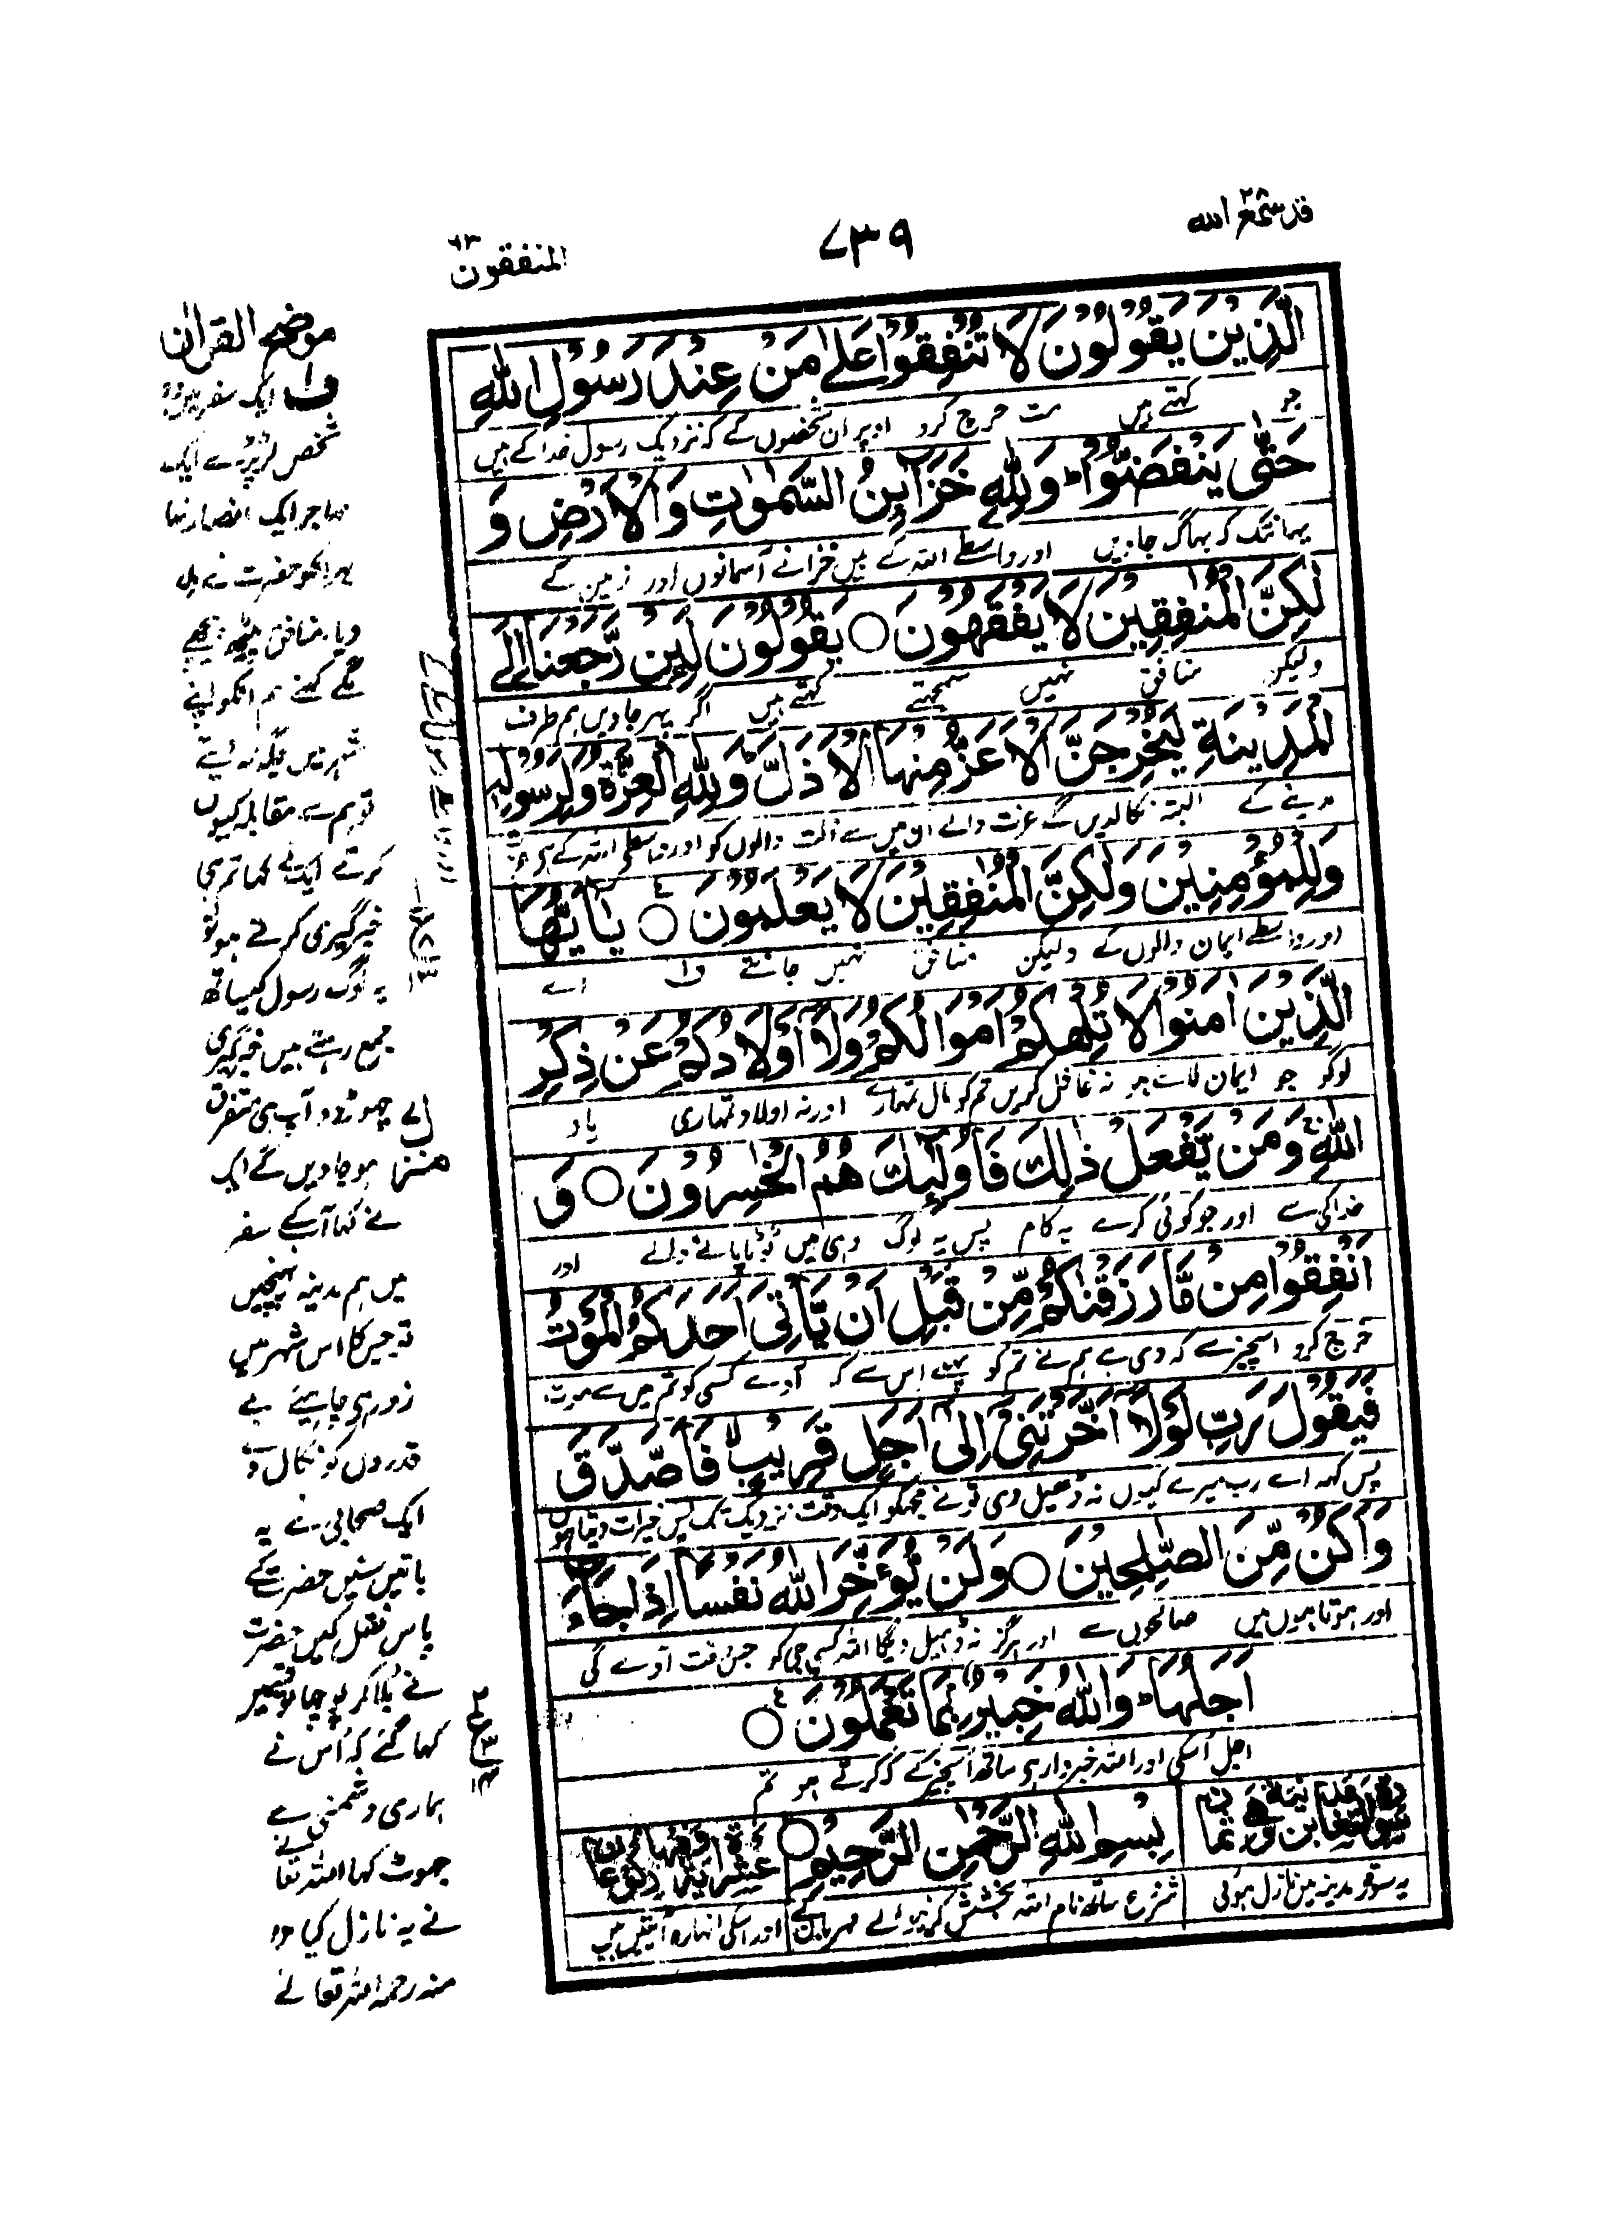 قد سمع الله ٢٨
٧٣٩
المنفقون ٦٣
الَّذِيْنَ يَقُوْلُوْنَ لَا تُنْفِقُوْا عَلٰى مَنْ عِنْدَ رَسُوْلِ اللّٰهِ
جو کہتے ہیں مت خرچ کرو اوپر ان شخصوں کے کہ نزدیک رسول خدا کے ہیں
حَتّٰى يَنْفَضُّوْا ط وَلِلّٰهِ خَزَآىِٕنُ السَّمٰوٰتِ وَالْاَرْضِ وَ
یہانتک کہ بہاگ جاویں اور واسطے اللہ کے ہیں خزانے آسمانوں اور زمین کے
لٰكِنَّ الْمُنٰفِقِيْنَ لَا يَفْقَهُوْنَ ○ يَقُوْلُوْنَ لَىِٕنْ رَّجَعْنَآ اِلَى
ولیکن منافق نہیں سمجھتے کہتے ہیں اگر پہر جاویں ہم طرف
الْمَدِيْنَةِ لَيُخْرِجَنَّ الْاَعَزُّ مِنْهَا الْاَذَلَّ ط وَلِلّٰهِ الْعِزَّةُ وَلِرَسُوْلِهٖ
مدینے کے البتہ نکالدیں گے عزت والے ان میں سے ذلت والوں کو اور واسطے اللہ کے ہی
وَلِلْمُؤْمِنِيْنَ وَلٰكِنَّ الْمُنٰفِقِيْنَ لَا يَعْلَمُوْنَ ○ يٰٓاَيُّهَا
اور واسطے ایمان والوں کے ولیکن منافق نہیں جانتے ف۱ اے
الَّذِيْنَ اٰمَنُوْا لَا تُلْهِكُمْ اَمْوَالُكُمْ وَلَآ اَوْلَادُكُمْ عَنْ ذِكْرِ
لوگو جو ایمان لائے ہو نہ غافل کریں تم کو مال تمہارے اور نہ اولاد تمہاری یاد
اللّٰهِ ج وَمَنْ يَّفْعَلْ ذٰلِكَ فَاُولٰٓىِٕكَ هُمُ الْخٰسِرُوْنَ ○ وَ
خدا کی سے اور جو کوئی کرے یہ کام پس یہ لوگ وہی ہیں ٹوٹا پانے والے اور
اَنْفِقُوْا مِنْ مَّا رَزَقْنٰكُمْ مِّنْ قَبْلِ اَنْ يَّاْتِىَ اَحَدَكُمُ الْمَوْتُ
خرچ کرو اسچیز سے کہ دی ہے ہم نے تم کو پہلے اس سے کہ آوے کسی کو تم میں سے موت
فَيَقُوْلَ رَبِّ لَوْلَآ اَخَّرْتَنِىْٓ اِلٰٓى اَجَلٍ قَرِيْبٍ لا فَاَصَّدَّقَ
پس کہے اے رب میرے کیوں نہ ڈھیل دی تو نے مجھکو ایک وقت نزدیک تک پس خیرات دیتا
وَاَكُنْ مِّنَ الصّٰلِحِيْنَ ○ وَلَنْ يُّؤَخِّرَ اللّٰهُ نَفْسًا اِذَا جَآءَ
اور ہوتا ہوں میں صالحوں سے اور ہرگز نہ ڈھیل دیگا اللہ کسی جی کو جس وقت آوے گی
اَجَلُهَا ط وَاللّٰهُ خَبِيْرٌۢ بِمَا تَعْمَلُوْنَ ○
اجل اسکی اور اللہ خبردار ہی ساتھ اسچیز کے کہ کرتے ہو تم
بِسْمِ اللّٰهِ الرَّحْمٰنِ الرَّحِيْمِ ○
یہ سورۃ مدینہ میں نازل ہوئی
شروع ساتھ نام اللہ بخشش کرنیوالے مہربان کے
اور اسکی اٹہارہ آیتیں ہیں
موضح القرآن
ف۱ ایک سفر میں دو
شخص لڑپڑے ایک
مہاجر ایک انصار نہا
پہر انکو حضرت نے ملا
دیا منافق پیٹھ پیچھے
لگے کہنے ہم انکو اپنے
شہر میں جگہ نہ دیتے
تو ہم سے مقابلہ کیوں
کرتے ایک نے کہا تم ہی
خبرگیری کرتے ہو تو
یہ لوگ رسول کیساتھ
جمع رہتے ہیں خبرگیری
چھوڑدو آپ ہی متفرق
ہوجاویں گے ایک
نے کہا اب کے سفر
میں ہم مدینہ پہنچیں
تو جس کا اس شہر میں
زور ہی چاہیئے بے
قدروں کو نکال دے
ایک صحابی نے یہ
باتیں سنیں حضرت کے
پاس نقل کیں حضرت
نے بلا کر پوچھا تو قسمیں
کہا گئے کہ اس نے
ہماری دشمنی سے
جھوٹ کہا اللہ تعالے
نے یہ نازل کیا
منہ رحمہ اللہ تعالے